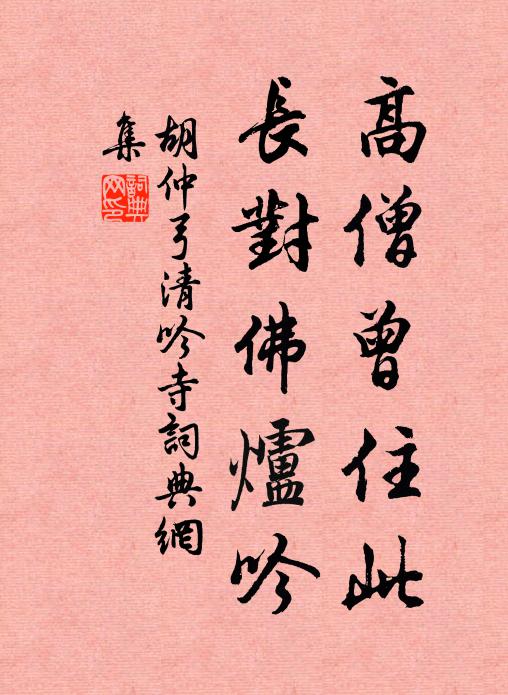 高僧曾住此
長對佛爐吟
胡仲弓清吟寺詞典網
集
詞典
网印